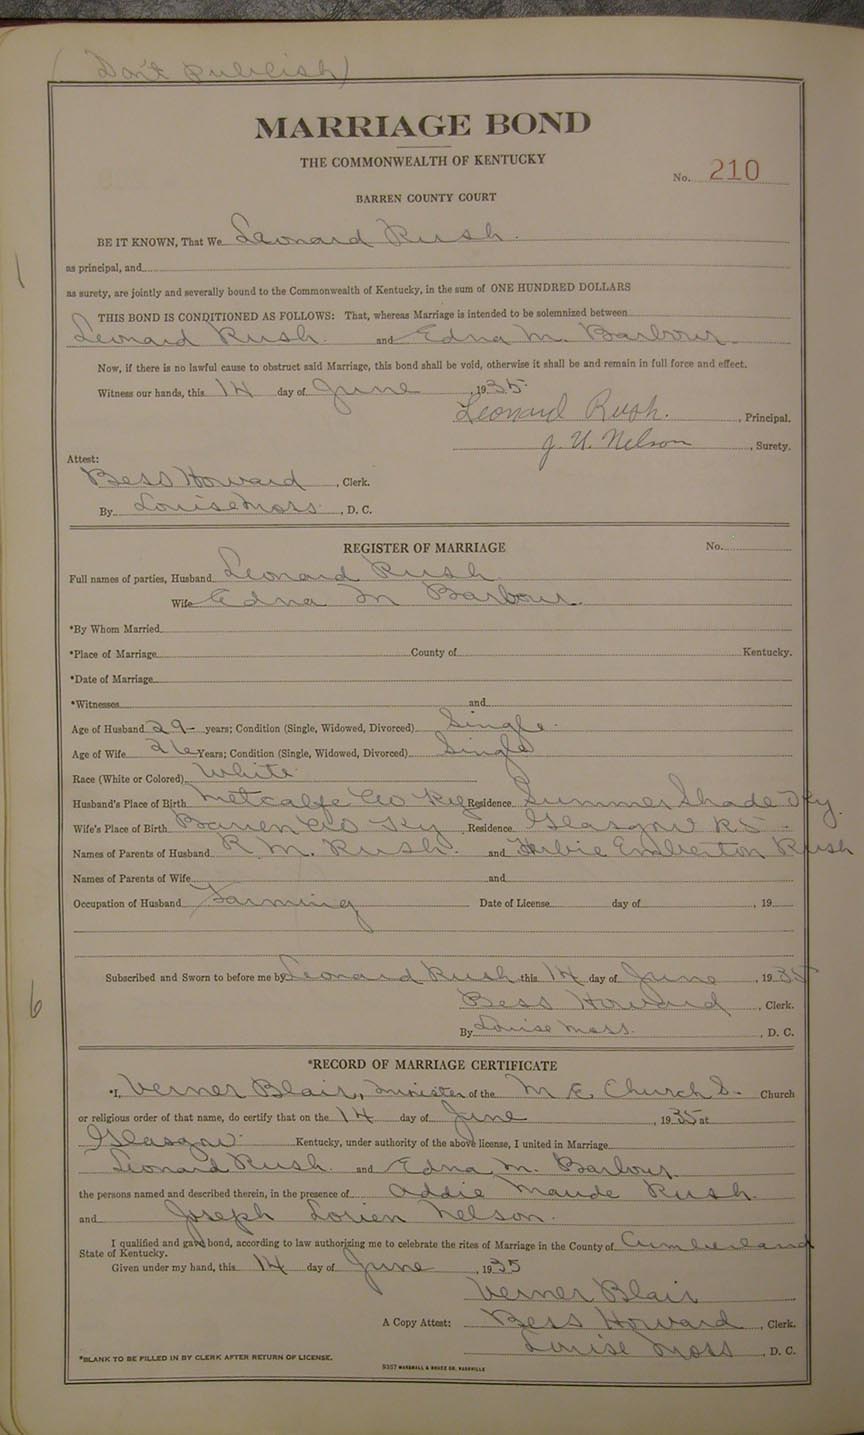 (Don't Publish)
MARRIAGE BOND
THE COMMONWEALTH OF KENTUCKY
No. 210
BARREN COUNTY COURT
BE IT KNOWN, That We Leonard Rush.
as principal, and
as surety, are jointly and severally bound to the Commonwealth of Kentucky, in the sum of ONE HUNDRED DOLLARS
THIS BOND IS CONDITIONED AS FOLLOWS: That, whereas Marriage is intended to be solemnized between
Leonard Rush. and Edna M. Barbour.
Now, if there is no lawful cause to obstruct said Marriage, this bond shall be void, otherwise it shall be and remain in full force and effect.
Witness our hands, this 14 day of June, 1935.
Leonard Rush., Principal.
J. U. Nelson, Surety.
Attest:
Bess Howard, Clerk.
By Louise Moss., D. C.
REGISTER OF MARRIAGE No.
Full names of parties, Husband Leonard Rush.
Wife Edna M Barbour.
*By Whom Married
*Place of Marriage County of Kentucky.
*Date of Marriage
*Witnesses and
Age of Husband 29 years; Condition (Single, Widowed, Divorced) Single.
Age of Wife 26 Years; Condition (Single, Widowed, Divorced) Single
Race (White or Colored) White.
Husband's Place of Birth Metcalfe Co Ky Residence Summer Shade Ky.
Wife's Place of Birth Barren Co Ky Residence Glasgow R5.
Names of Parents of Husband R M. Rush. and Emberton Rush
Names of Parents of Wife and
Occupation of Husband Farming Date of License day of, 19
Subscribed and Sworn to before me by Leonard Rush this 14 day of June, 1935
Bess Howard, Clerk.
6
By Louise Moss., D. C.
*RECORD OF MARRIAGE CERTIFICATE
*I, Verner Blair, Minister of the M. E. Church S. Church
or religious order of that name, do certify that on the 14 day of June, 1935 at
Glasgow. Kentucky, under authority of the above license, I united in Marriage
Leonard Rush. and Edna M. Barbour.
the persons named and described therein, in the presence of Addie Maude Rush.
and Joseph Lorien Nelson.
I qualified and gave bond, according to law authorizing me to celebrate the rites of Marriage in the County of Cumberland
State of Kentucky.
Given under my hand, this 14 day of June, 1935
Verner Blair
A Copy Attest: Bess Howard, Clerk.
Louise Moss, D. C.
*BLANK TO BE FILLED IN BY CLERK AFTER RETURN OF LICENSE.
MARSHALL & BRUCE CO. NASHVILLE